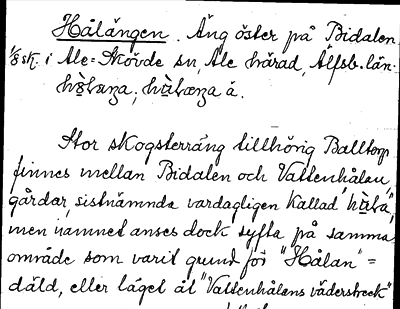 Hålängen. Äng öster på Bidalen
1/8 sk. i Ale-Skövde sn, Ale härad, Älfsb. län.
Stor skogsterräng tillhörig Balltorp
finnes mellan Bidalen och Vattenhålan,
gårdar, sistnämnda vardagligen kallad
men namnet anses dock syfta på samma
område som varit grund för "Hålan" =
däld, eller läget åt "Vattenhålans väderstreck"